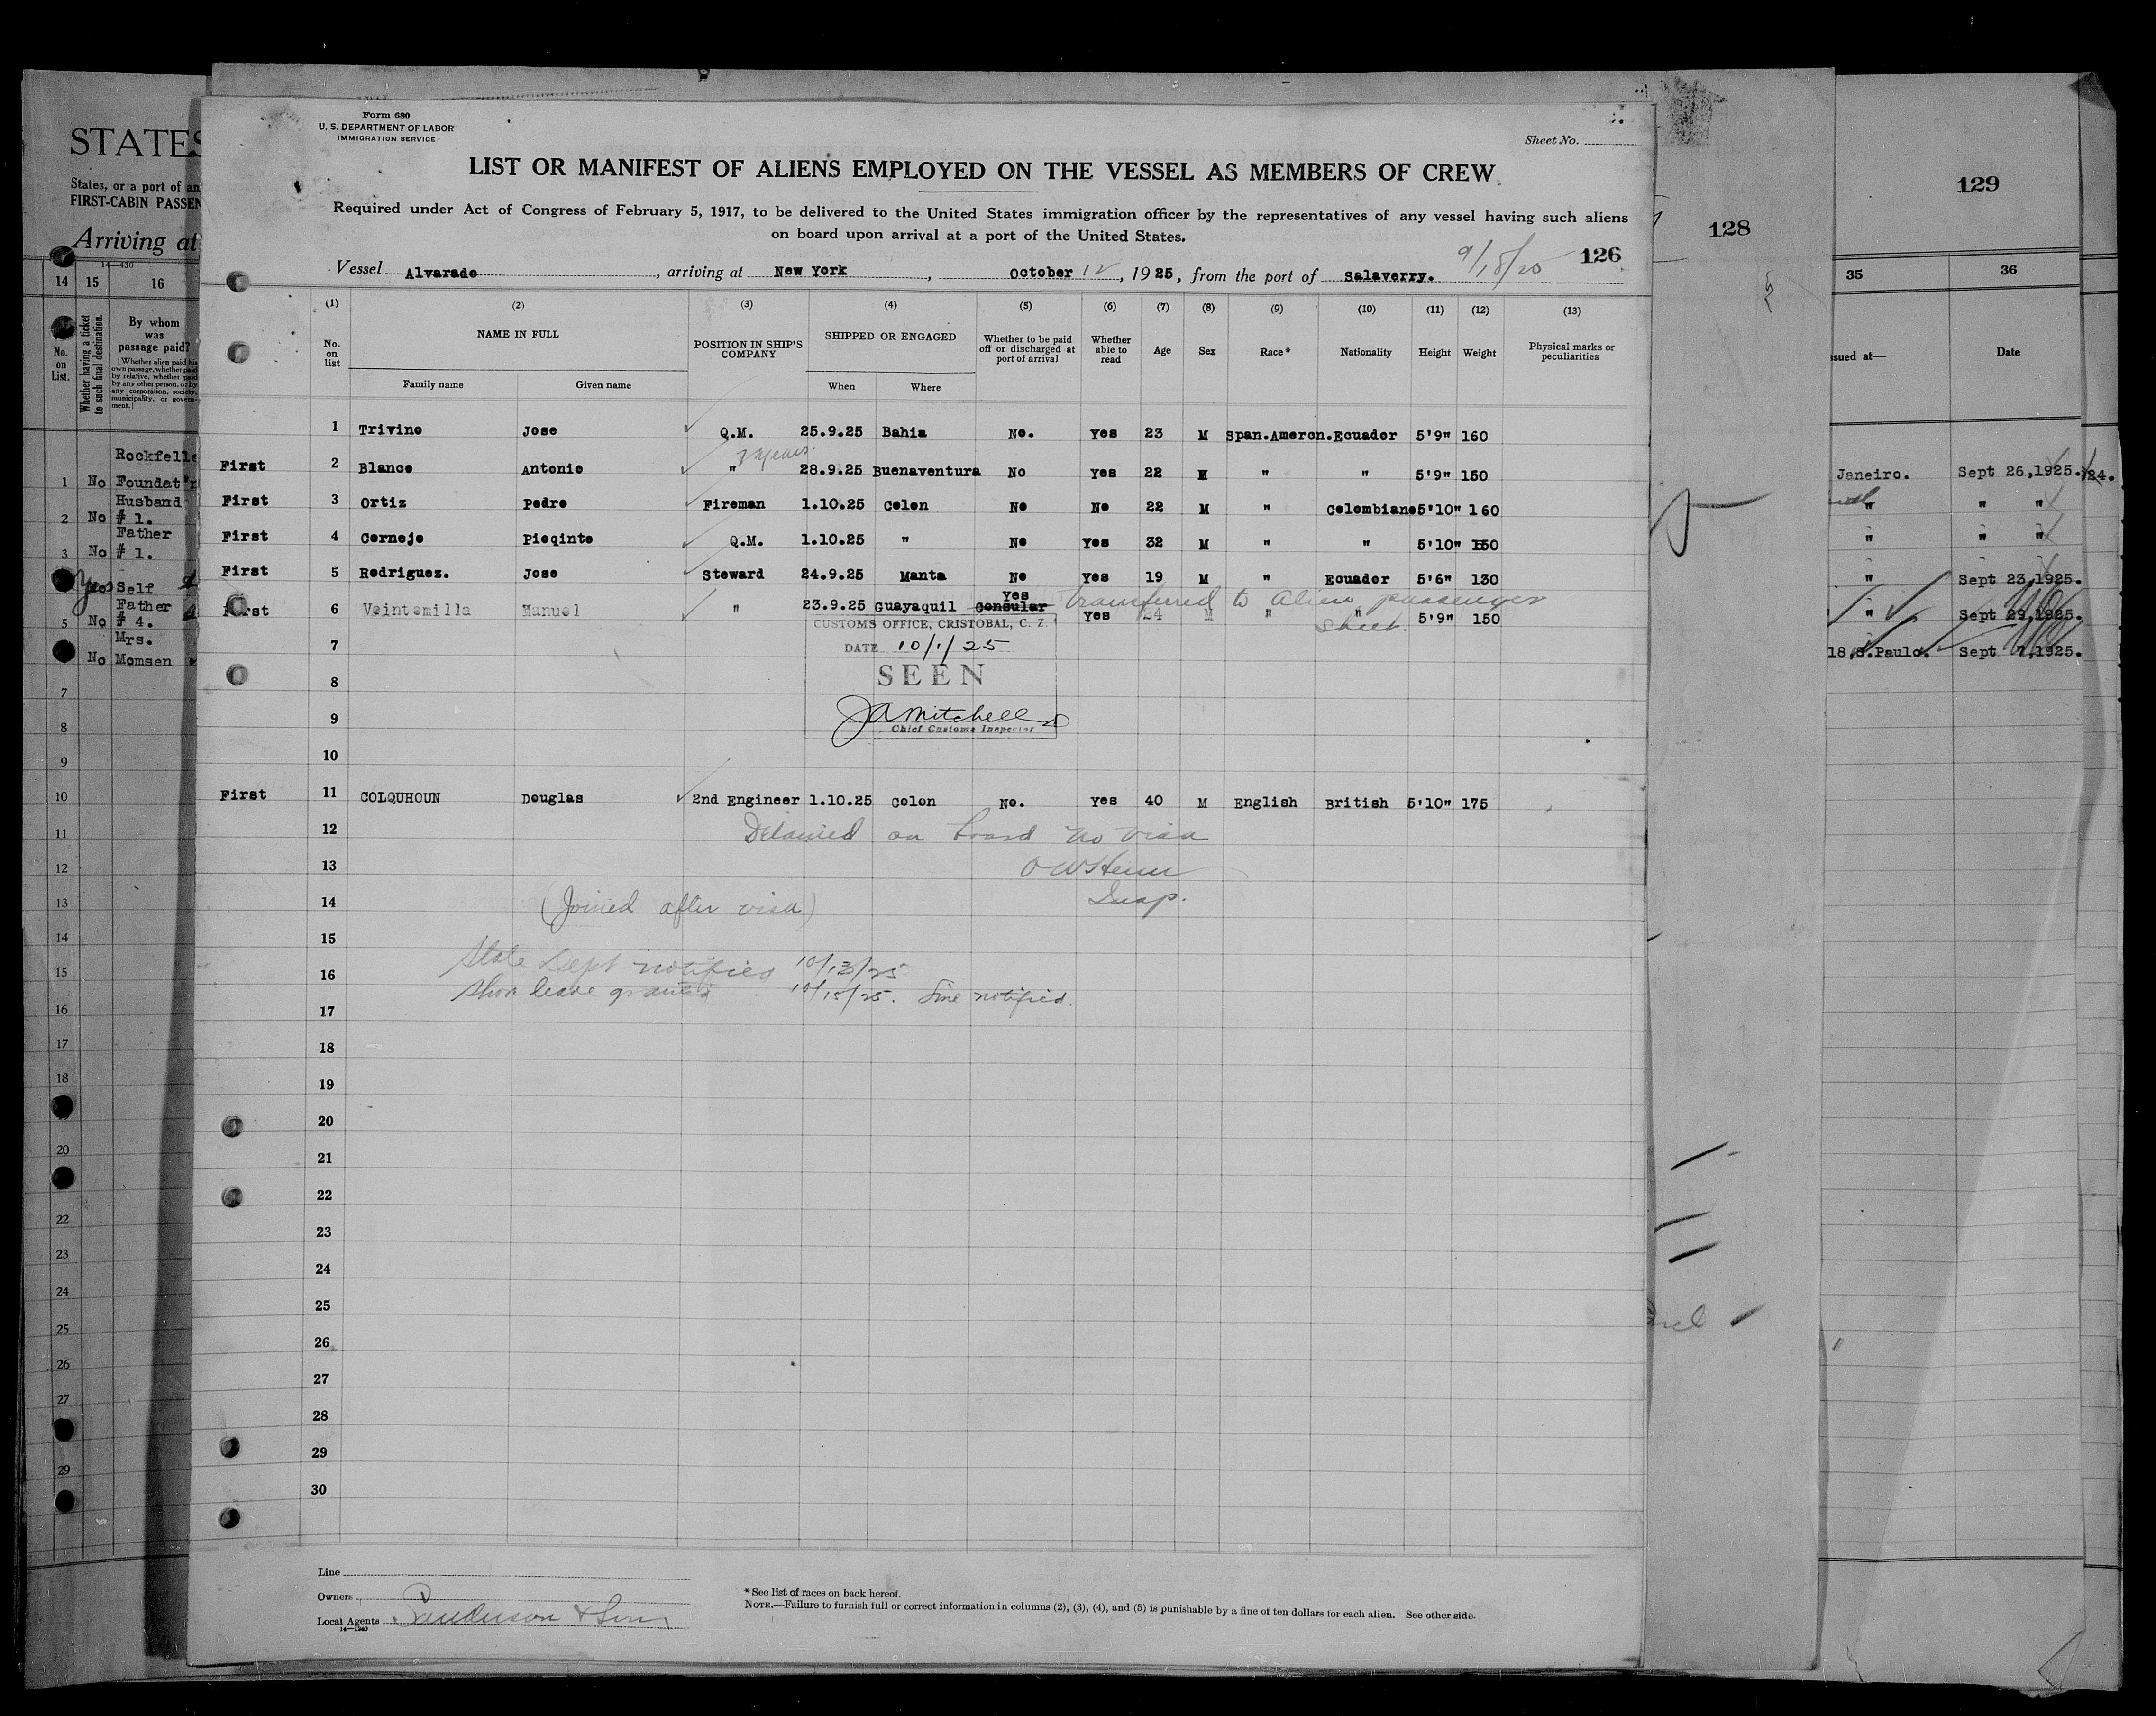 Form 680
U. S. DEPARTMENT OF LABOR
IMMIGRATION SERVICE
Sheet No.
LIST OR MANIFEST OF ALIENS EMPLOYED ON THE VESSEL AS MEMBERS OF CREW
Required under Act of Congress of February 5, 1917, to be delivered to the United States immigration officer by the representatives of any vessel having such aliens
on board upon arrival at a port of the United States.
126
Vessel Alvarado, arriving at New York, October 12, 1925, from the port of Salaverry. 9/18/25
(1) (2) (3) (4) (5) (6) (7) (8) (9) (10) (11) (12) (13)
No. on list NAME IN FULL Family name Given name POSITION IN SHIP'S COMPANY SHIPPED OR ENGAGED When Where Whether to be paid off or discharged at port of arrival Whether able to read Age Sex Race* Nationality Height Weight Physical marks or peculiarities
1 Trivino Jose Q.M. 25.9.25 Bahia No. Yes 23 M Span.Amercn. Ecuador 5'9" 160
years.
First 2 Blanco Antonio " 28.9.25 Buenaventura No Yes 22 M " " 5'9" 150
First 3 Ortiz Pedro Fireman 1.10.25 Colon No No 22 M " Colombiano 5'10" 160
First 4 Cornejo Pioqinto Q.M. 1.10.25 " No Yes 32 M " " 5'10" 150
First 5 Rodriguez. Jose Steward 24.9.25 Manta No Yes 19 M " Ecuador 5'6" 130
First 6 Veintemilla Manuel " 23.9.25 Guayaquil Consular Yes Yes 24 M " " 5'9" 150
Transferred to Alien passenger
sheet.
CUSTOMS OFFICE, CRISTOBAL, C. Z.
7
DATE 10/1/25
8
SEEN
9
JA Mitchell
Chief Customs Inspector
10
First 11 COLQUHOUN Douglas 2nd Engineer 1.10.25 Colon No. Yes 40 M English British 5'10" 175
12 Detained on board no visa
13
14 (Joined after visa) Insp.
15
16 State Dept notified 10/13/25
Shore leave granted 10/15/25. Line notified.
17
18
19
20
21
22
23
24
25
26
27
28
29
30
Line
Owners
Local Agents & Son
14—1240
* See list of races on back hereof.
NOTE.—Failure to furnish full or correct information in columns (2), (3), (4), and (5) is punishable by a fine of ten dollars for each alien. See other side.
STATES
States, or a port of an
FIRST-CABIN PASSEN
Arriving at
14—430
14 15 16
No. on List.
Whether having a ticket to such final destination.
By whom was passage paid?
(Whether alien paid his own passage, whether paid by relative, whether paid by any other person, or by any corporation, society, municipality, or government.)
Rockfelle
1 No Foundat'n
Husband
2 No # 1.
Father
3 No # 1.
Yes No Self
Father
5 No # 4.
Mrs.
No Momsen
7
8
9
10
11
12
13
14
15
16
17
18
20
22
23
24
25
26
27
29
128
129
35 36
ssued at— Date
Janeiro. Sept 26,1925. 24.
" " "
" " "
" Sept 23,1925.
" Sept 29,1925.
18,S.Paulo. Sept 7,1925.